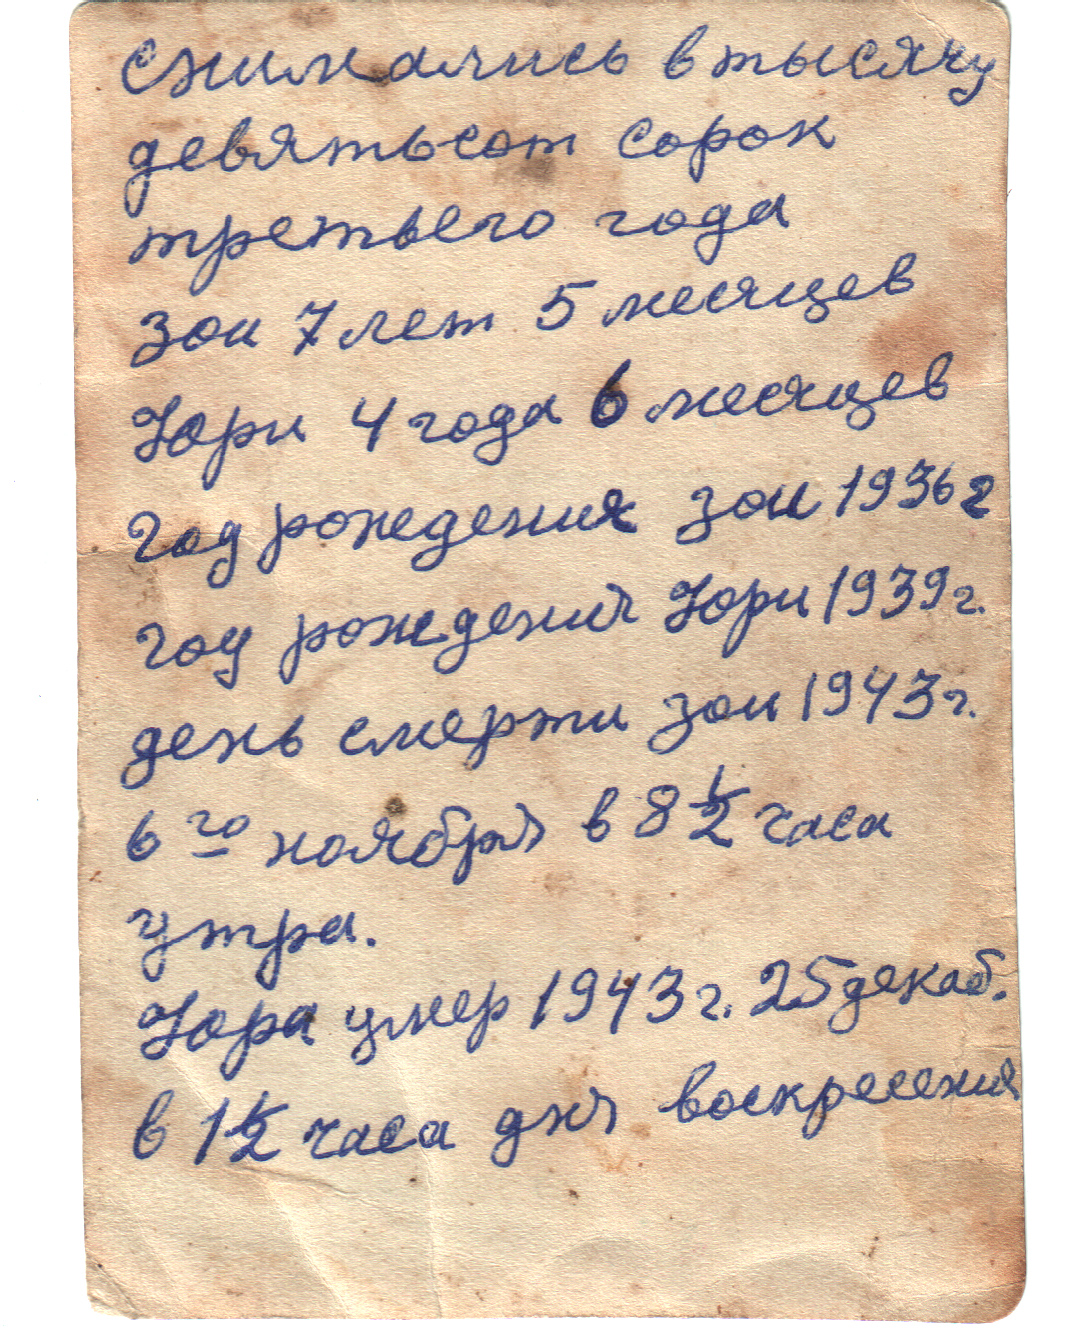 снимались в тысячу
девятьсот сорок
третьего года
Зои 7 лет 5 месяцев
Юри 4 года 6 месяцев
Год рождения зои 1936 г
год рождения Юри 1939 г.
день смерти зои 1943 г.
6 го ноября в 8 1/2 часа
утра.
Юра умер 1943 г. 25 декаб.
в 1 1/2 часа дня воскресения